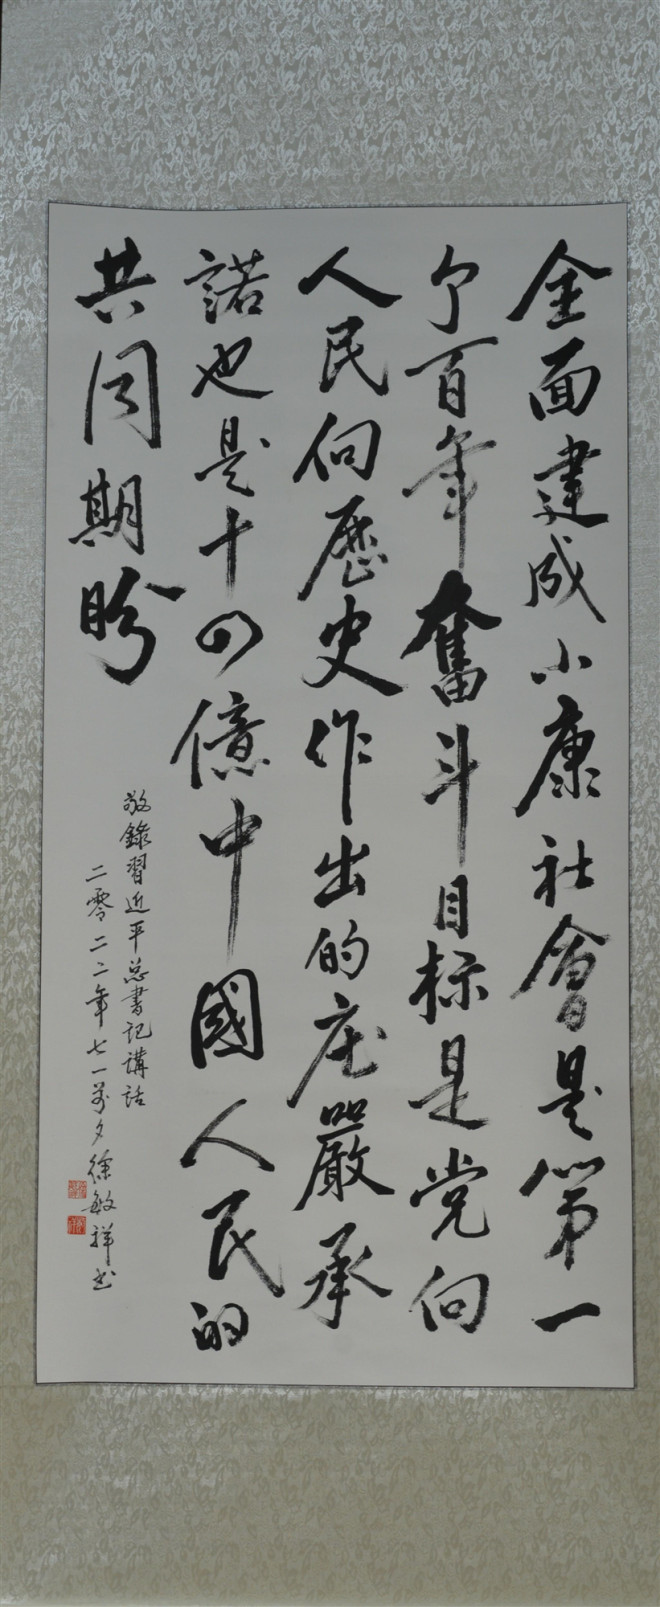 全面建成小康社會是第一
个百年奮斗目标是党向
人民向歷史作出的庄嚴承
諾也是十四億中國人民的
共同期盼
敬錄習近平总書記講話
二零二二年七一前夕徐敏祥书